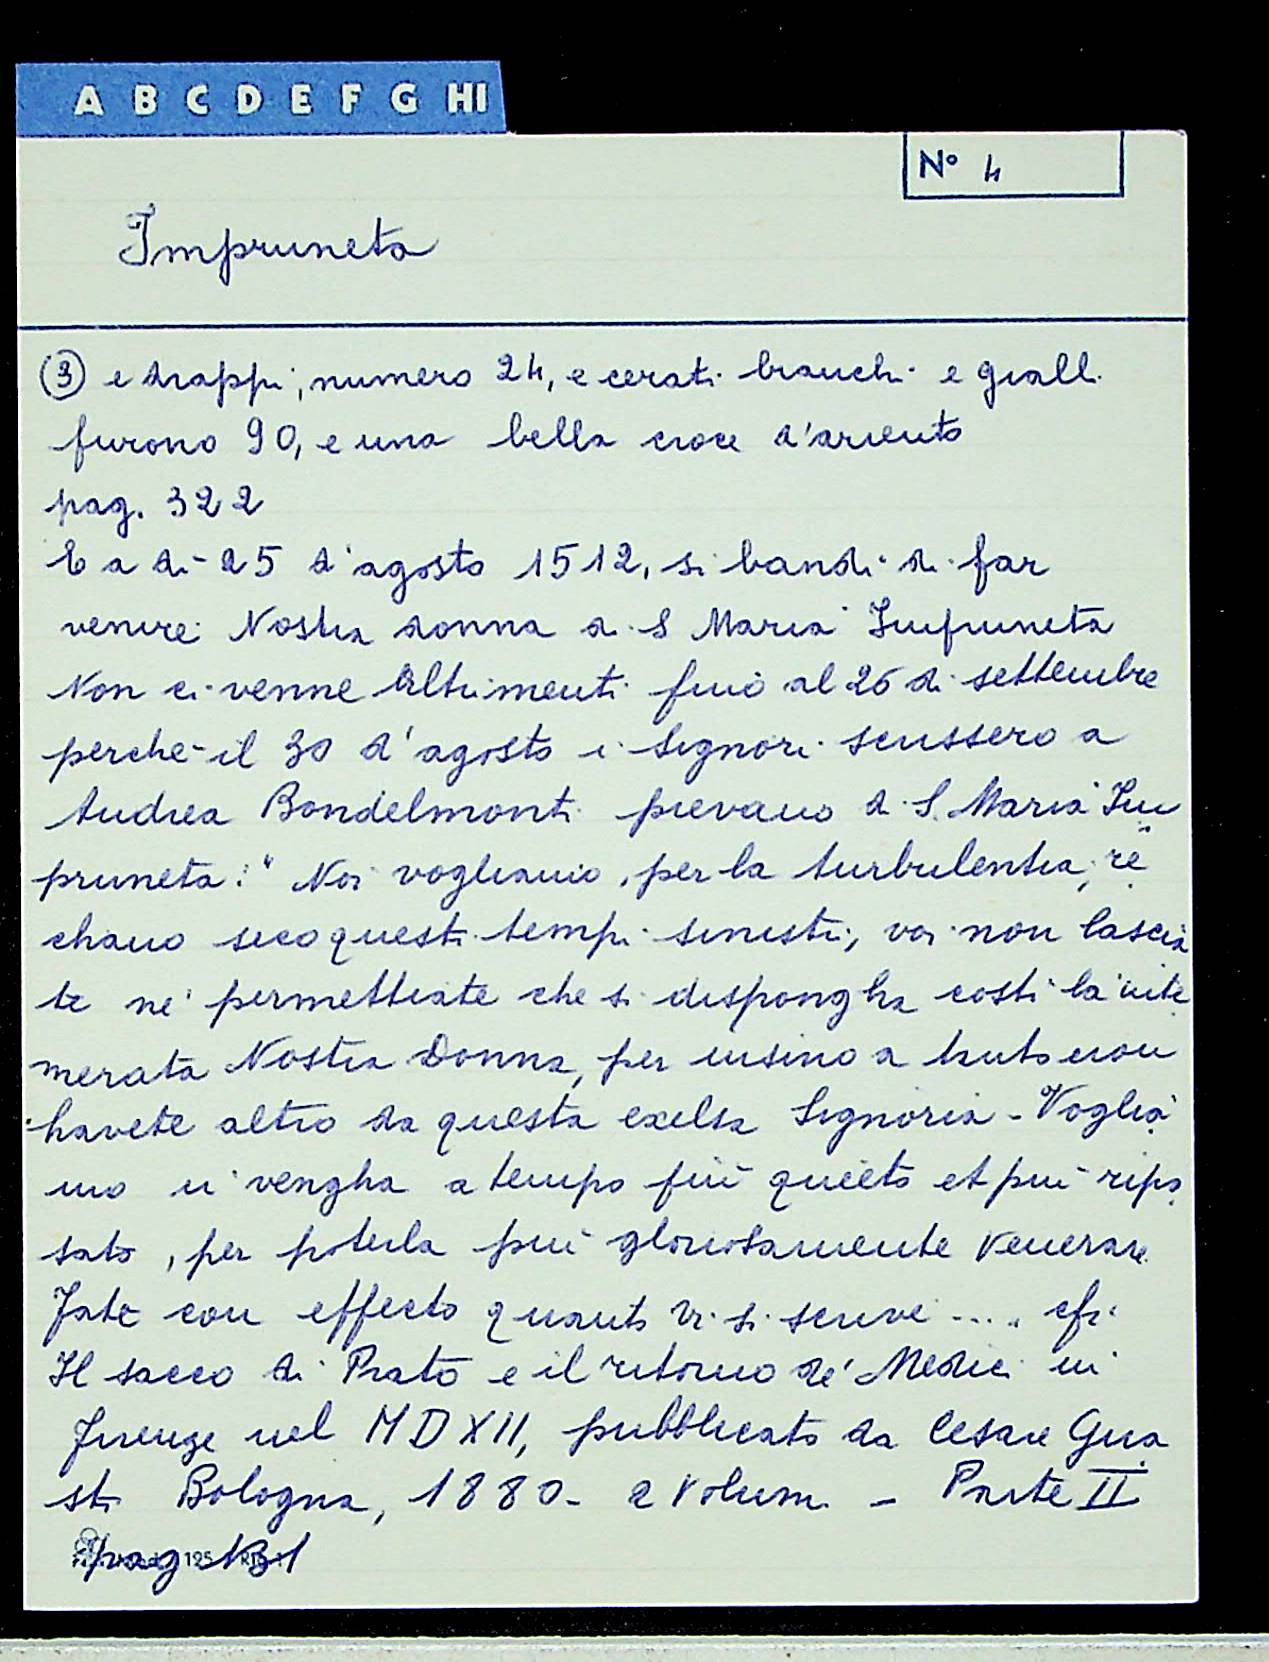 A B C D E F G HI
N° 4
Impruneta
③ e drappi, numero 24, e cerati bianchi e gialli
furono 90, e una bella croce d'ariento
pag. 322
E a dì 25 d'agosto 1512, si bandì di far
venire Nostra donna di S Maria Impruneta
Non ci venne altrimenti fino al 26 di settembre
perchè il 30 d'agosto i Signori scrissero a
Andrea Bondelmonti pievano di S. Maria Im
pruneta: "Noi vogliamo, per la turbulentia, re
chano seco questi tempi sinistri, voi non lascia
te nè permettiate che si dispongha costì la inte
merata Nostra Donna, per insino a tanto non
havete altro da questa exelsa Signoria - Voglia
mo vi vengha a tempo più quieto et più ripo
sato, per poterla più gloriosamente venerare
Fate con effecto quanto vi si scrive .... cfr.
Il sacco di Prato e il ritorno de' Medici in
Firenze nel MDXII, pubblicato da Cesare Gua
sti Bologna, 1880 - 2 Volumi - Parte II
pag 131